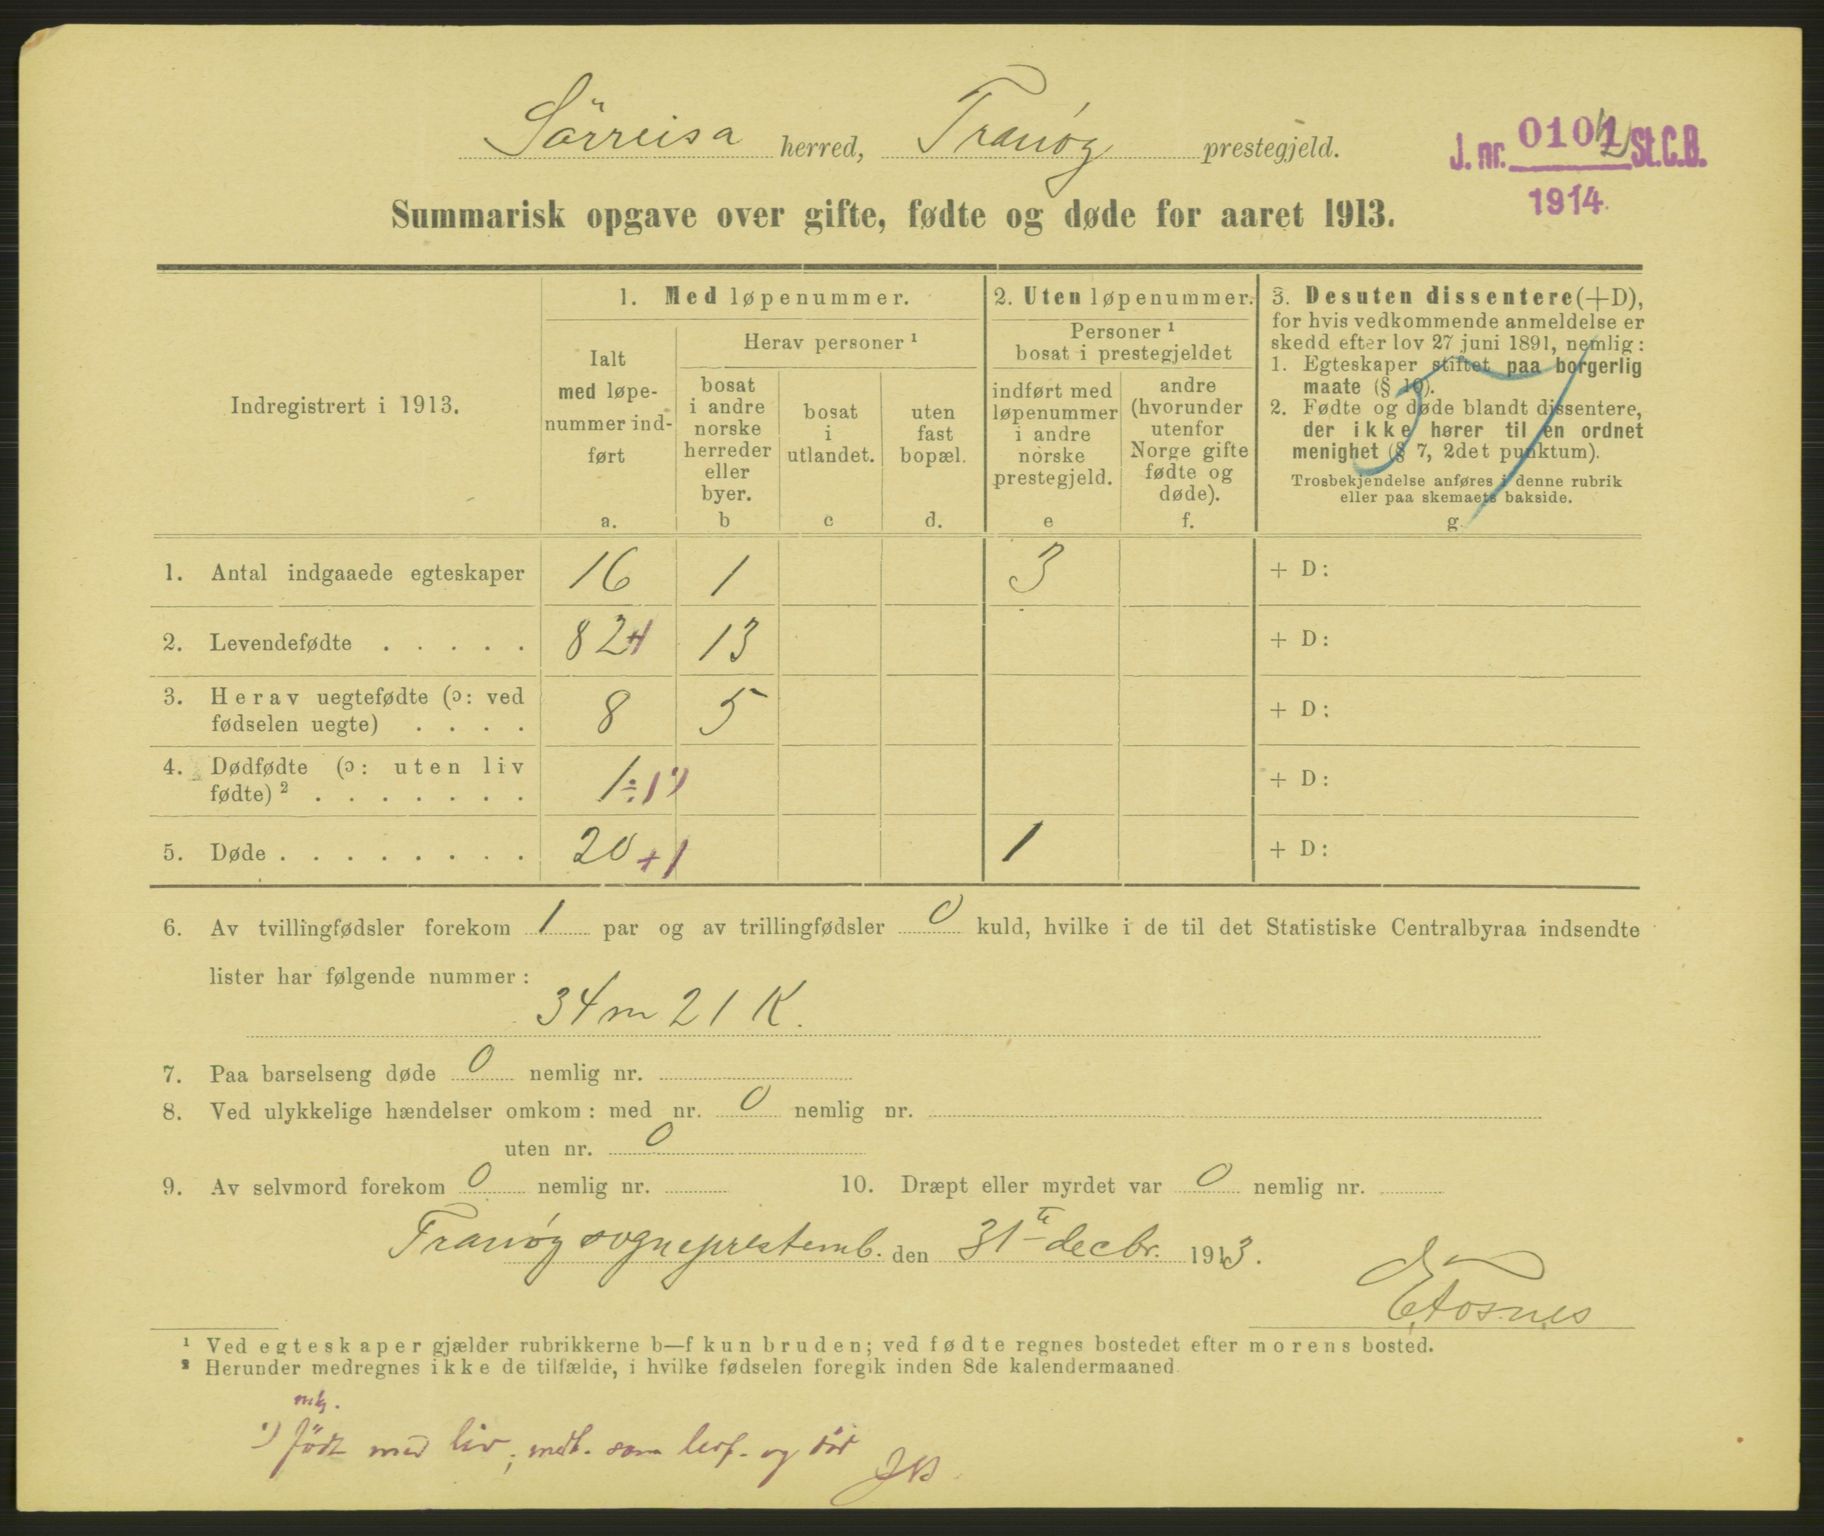 Sörreisa herred, Tranöy prestegjeld.
J. nr. 0101 St.C.B.
1914.
Summarisk opgave over gifte, fødte og døde for aaret 1913.
Indregistrert i 1913.
1. Med løpenummer.
Ialt med løpenummer indført
a.
Herav personer ¹
bosat i andre norske herreder eller byer.
b
bosat i utlandet.
c
uten fast bopæl.
d.
2. Uten løpenummer.
Personer ¹ bosat i prestegjeldet
indført med løpenummer i andre norske prestegjeld.
e
andre (hvorunder utenfor Norge gifte fødte og døde).
f.
3. Desuten dissentere (+D),
for hvis vedkommende anmeldelse er
skedd efter lov 27 juni 1891, nemlig:
1. Egteskaper stiftet paa borgerlig
maate (§ 10).
2. Fødte og døde blandt dissentere,
der ikke hører til en ordnet
menighet (§ 7, 2det punktum).
Trosbekjendelse anføres i denne rubrik
eller paa skemaets bakside.
g.
1. Antal indgaaede egteskaper 16 1 3 + D:
2. Levendefødte . . . . . 82+1 13 + D:
3. Herav uegtefødte (ɔ: ved
fødselen uegte) . . . . 8 5 + D:
4. Dødfødte (ɔ: uten liv
fødte) ² . . . . . . . 1÷1 ¹) + D:
5. Døde . . . . . . . . 20+1 1 + D:
6. Av tvillingfødsler forekom 1 par og av trillingfødsler 0 kuld, hvilke i de til det Statistiske Centralbyraa indsendte
lister har følgende nummer:
34 m 21 K.
7. Paa barselseng døde 0 nemlig nr.
8. Ved ulykkelige hændelser omkom: med nr. 0 nemlig nr.
uten nr. 0
9. Av selvmord forekom 0 nemlig nr. 10. Dræpt eller myrdet var 0 nemlig nr.
Tranöy sogneprestemb. den 31te decbr. 1913.
E. Fosnes
¹ Ved egteskaper gjælder rubrikkerne b—f kun bruden; ved fødte regnes bostedet efter morens bosted.
² Herunder medregnes ikke de tilfælde, i hvilke fødselen foregik inden 8de kalendermaaned
mk.
¹) født med liv; medt. som levf. og død